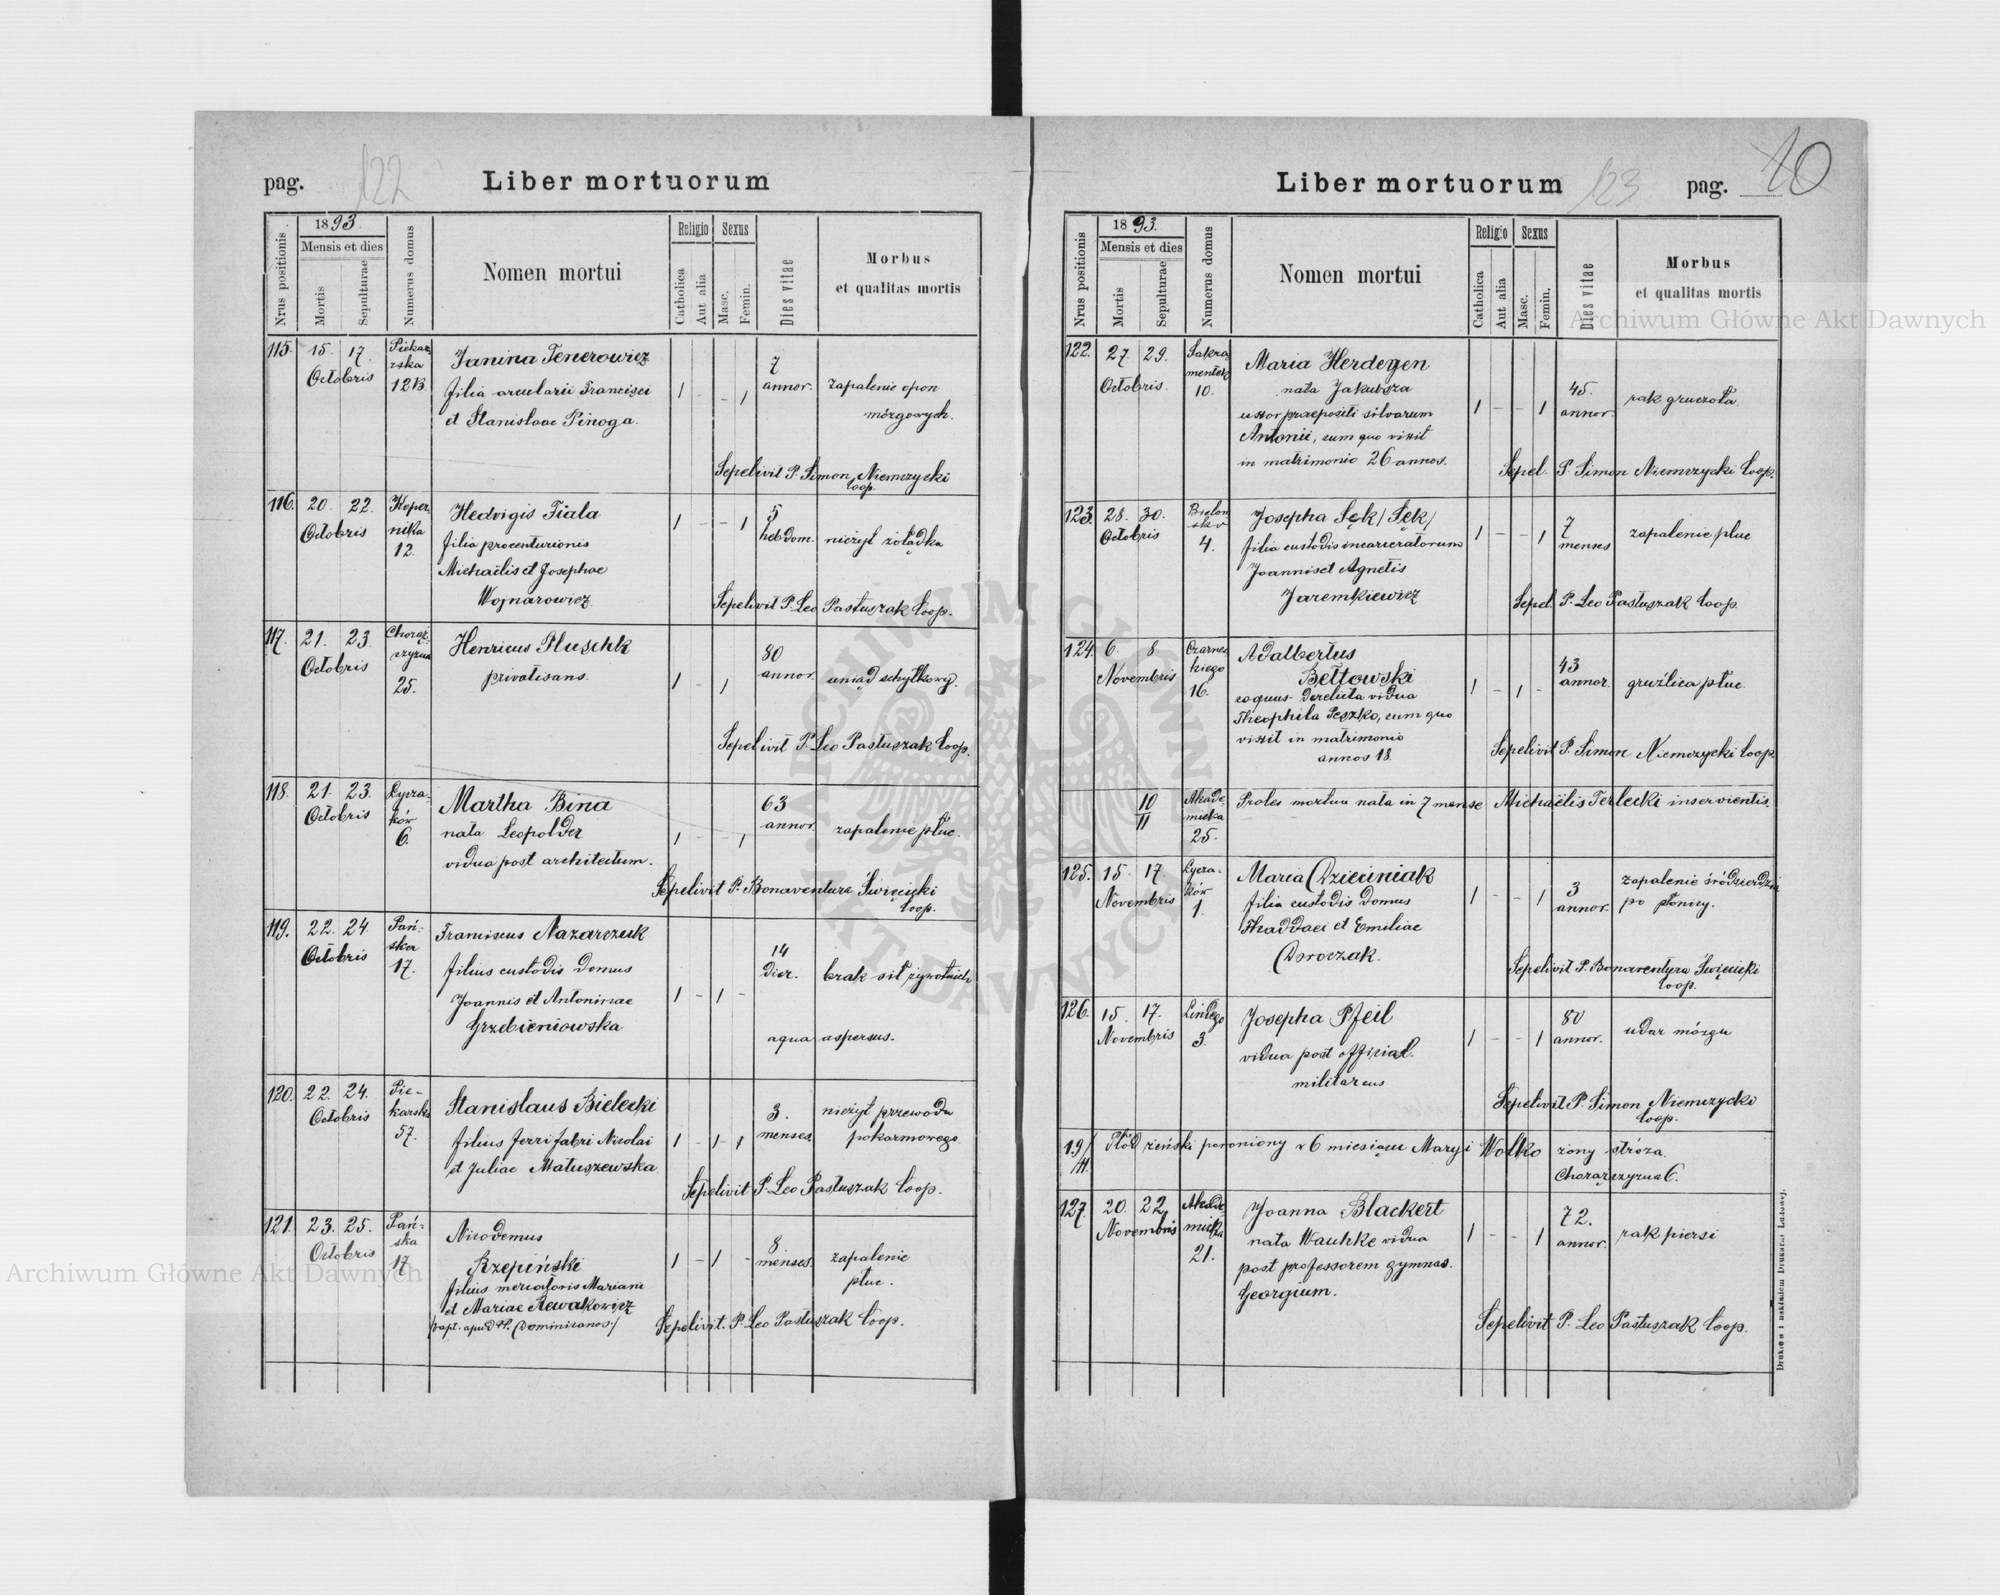 pag. 122 Liber mortuorum
Nrus positionis
1893.
Mensis et dies
Mortis
Sepulturae
Numerus domus
Nomen mortui
Religio
Catholica
Aut alia
Sexus
Masc.
Femin.
Dies vitae
Morbus
et qualitas mortis
115. 15. 17. Octobris
Piekarska
12B
Janina Tenerowicz
filia arcularii Francisci
et Stanislaae Pinoga.
1 - - 1
7
annor.
zapalenie opon
mózgowych.
Sepelivit P. Simon Niemczycki
Coop.
116. 20. 22. Octobris
Koper
nika
12.
Hedvigis Fiala
filia procenturionis
Michaëlis et Josephae
Wojnarowicz
1 - - 1
5
hebdom.
nieżyt żołądka
Sepelivit P. Leo Pastuszak Coop.
117. 21. 23 Octobris
Chorąż
czyzna
25.
Henricus Pluschk
privatisans.
1 - 1
80
annor.
uwiąd schyłkowy.
Sepelivit P. Leo Pastuszak Coop.
118. 21. 23. Octobris
Łycza-
ków
6.
Martha Bina
nata Leopolder
vidua post architectum.
1 - - 1
63
annor.
zapalenie płuc.
Sepelivit P. Bonaventura Święcicki
Coop.
119. 22. 24. Octobris
Pań-
ska
17.
Franciscus Nazarczuk
filius custodis domus
Joannis et Antoninae
Grzebieniowska
1 - 1 -
14
dier.
brak sił żywotnich
aqua aspersus.
120. 22. 24. Octobris
Pie-
karska
57.
Stanislaus Bielecki
filius ferri fabri Nicolai
et Juliae Matuszewska
1 - 1 - 1
3.
menses
nieżyt przewodu
pokarmowego
Sepelivit P. Leo Pastuszak Coop.
121. 23. 25. Octobris
Pań-
ska
17
Nicodemus
Rzepiński
filius mercatoris Mariani
et Mariae Rewakowicz
/bapt. apud PP. Dominicanos./
1 - 1 -
8
menses.
zapalenie
płuc.
Sepelivit. P. Leo Pastuszak Coop.
Liber mortuorum 123 pag. 10
Nrus positionis
1893.
Mensis et dies
Mortis
Sepulturae
Numerus domus
Nomen mortui
Religio
Catholica
Aut alia
Sexus
Masc.
Femin.
Dies vitae
Morbus
et qualitas mortis
122. 27. 29. Octobris.
Sakra
mentek
10.
Maria Herdegen
nata Jakubsza
uxor praepositi silvarum
Antonii, cum quo vixit
in matrimonio 26 annos.
1 - - 1
45.
annor.
rak gruczoła.
Sepel. P. Simon Niemczycki Coop.
123. 28. 30. Octobris
4.
Josepha Sęk /Sęk/
filia custodis incarceratorum
Joannis et Agnetis
Jaremkiewicz
1 - - 1
7
menses
zapalenie płuc
Sepel. P. Leo Pastuszak Coop.
124. 6. 8. Novembris
Czarnec
kiego
16.
Adalbertus
Bełtowski
coquus derelicta vidua
Theophila Peszko, cum quo
vixit in matrimonio
annos 18.
1 - 1 -
43
annor.
gruźlica płuc.
Sepelivit P. Simon Niemczycki Coop.
10
II
Akade
micka
25.
Proles mortua nata in 7 mense Michaëlis Terlecki inservientis.
125. 15. 17. Novembris
Łycza-
ków
1.
Maria Dzieciniak
filia custodis domus
Thaddaei et Emiliae
Doroczak.
1 - - 1
3
annor.
zapalenie śródsierdzia
po płonicy.
Sepelivit P. Bonaventura Święcicki
Coop.
126. 15. 17. Novembris
Lindego
3.
Josepha Pfeil
vidua post official.
militareus
1 - - 1
80
annor.
udar mózgu
Sepelivit P. Simon Niemczycki
Coop.
19/
Płód żeński poroniony w 6 miesiącu Maryi Wołko żony stróża.
Chorążczyzna 6.
127 20. 22. Novembris
Akade
micka
21.
Joanna Blackert
nata Wauhke vidua
post professorem gymnas.
Georgium.
1 - - 1
72.
annor.
rak piersi
Sepelivit P. Leo Pastuszak Coop.
Drukiem i nakładem Drukarni Ludowej.
Archiwum Główne Akt Dawnych
Archiwum Główne Akt Dawnych
ARCHIWUM GŁÓWNE AKT DAWNYCH